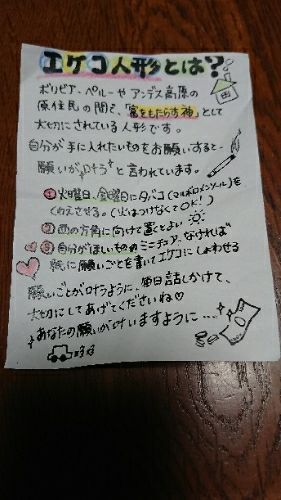 エケコ人形とは?
ボリビア、ペルーやアンデス高原の
原住民の間で、「富をもたらす神」として
大切にされている人形です。
自分が手に入れたいものをお願いすると
願いが叶うと言われています。
①火曜日、金曜日にタバコ(マルボロメンソール)を
くわえさせる。(火はつけなくてOK!)
②西の方角に向けて置くとよい
③自分がほしいもののミニチュア、なければ
紙に願いごとを書いてエケコにしょわせる
願いごとが叶うように、毎日話しかけて、
大切にしてあげてくださいね♡
あなたの願いが叶いますように…